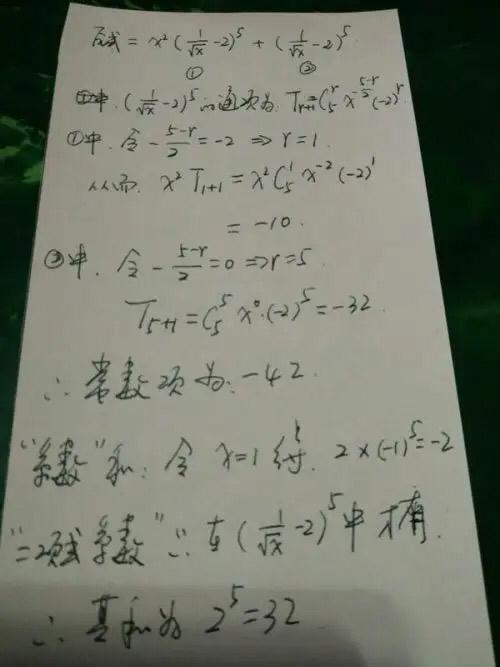 原式 = x²(1/√x - 2)⁵ + (1/√x - 2)⁵
① ②
①中. (1/√x - 2)⁵的通项为: Tᵣ₊₁ = C₅ʳ x^(-(5-r)/2) (-2)ʳ
①中. 令 -(5-r)/2 = -2 ⇒ r = 1.
从而. x² T₁₊₁ = x² C₅¹ x⁻² (-2)¹
= -10.
②中. 令 -(5-r)/2 = 0 ⇒ r = 5
T₅₊₁ = C₅⁵ x⁰·(-2)⁵ = -32.
∴ 常数项为: -42.
"系数"和: 令 x = 1 得. 2×(-1)⁵ = -2
"二项式系数" ∵ 在(1/√x - 2)⁵中才有.
∴ 其和为 2⁵ = 32